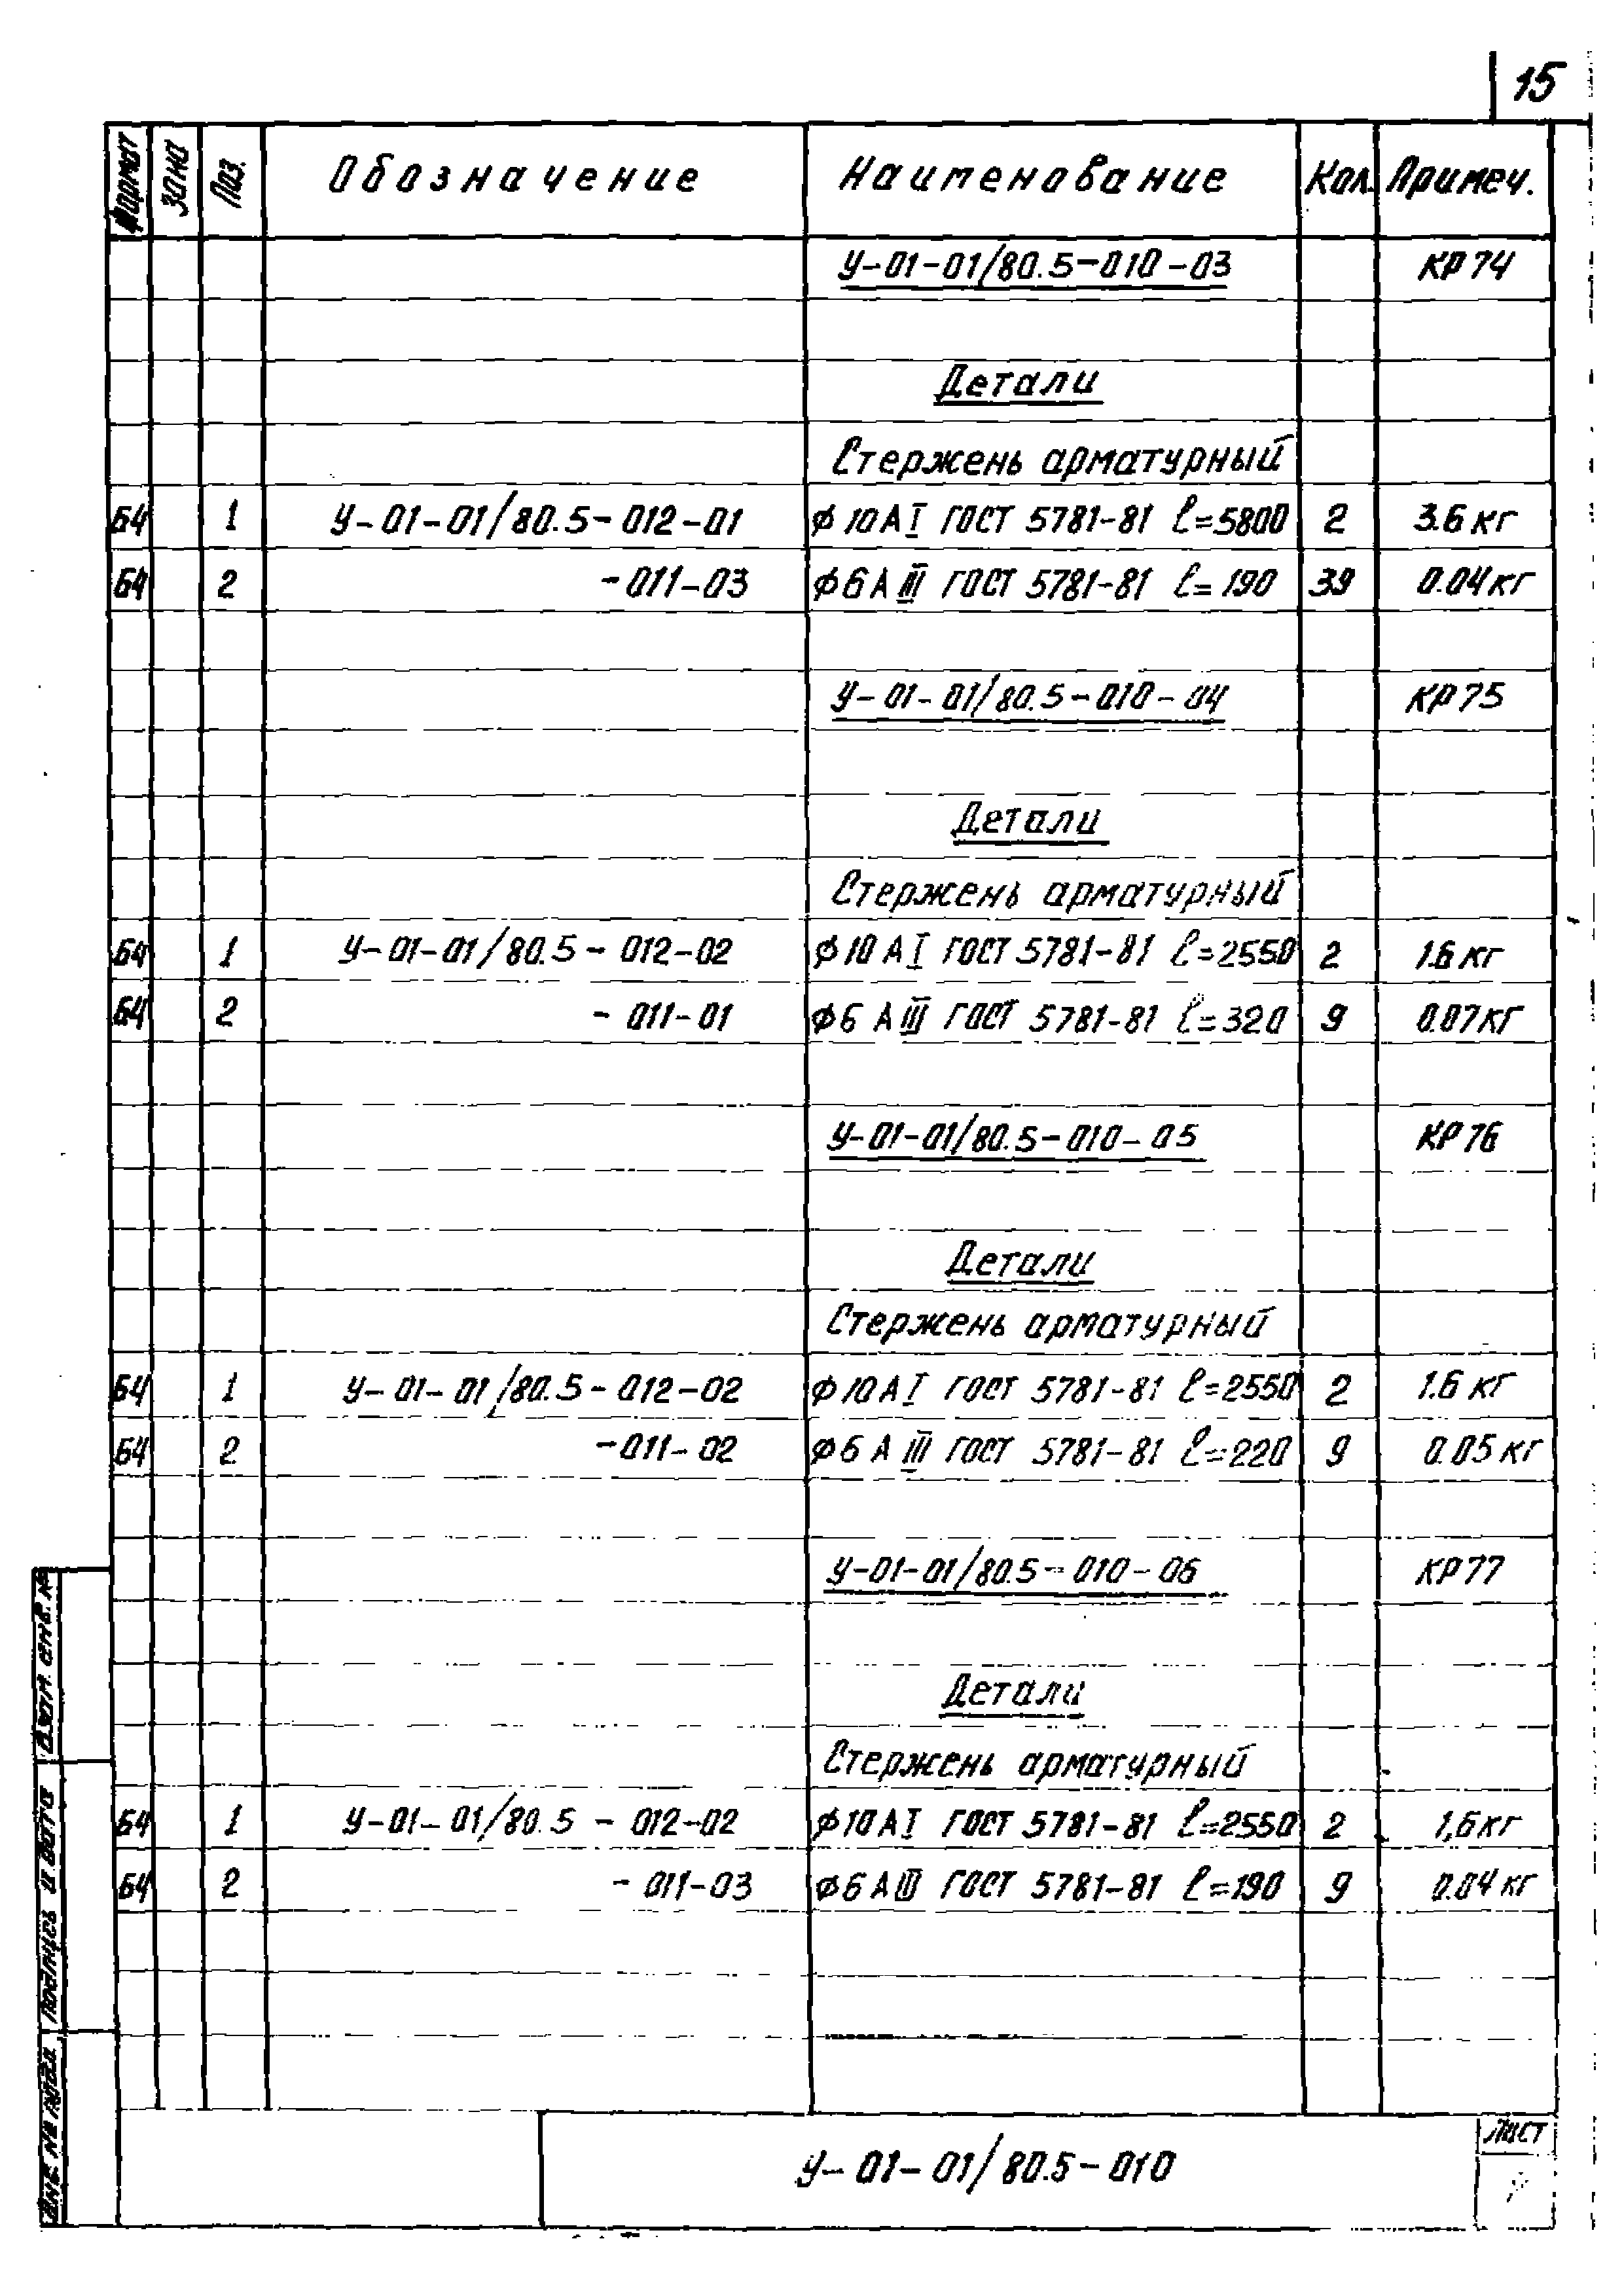 15
Формат Зона Поз. Обозначение Наименование Кол. Примеч.
У-01-01/80.5-010-03 КР74
Детали
Стержень арматурный
Б4 1 У-01-01/80.5-012-01 ф10АI ГОСТ 5781-81 ℓ=5800 2 3.6 кг
Б4 2 -011-03 ф6АIII ГОСТ 5781-81 ℓ=190 39 0.04кг
У-01-01/80.5-010-04 КР75
Детали
Стержень арматурный
Б4 1 У-01-01/80.5-012-02 ф10АI ГОСТ 5781-81 ℓ=2550 2 1.6 кг
Б4 2 -011-01 ф6 АIII ГОСТ 5781-81 ℓ=320 9 0.07кг
У-01-01/80.5-010-05 КР76
Детали
Стержень арматурный
Б4 1 У-01-01/80.5-012-02 ф10АI ГОСТ 5781-81 ℓ=2550 2 1.6 кг
Б4 2 -011-02 ф6 АIII ГОСТ 5781-81 ℓ=220 9 0.05 кг
У-01-01/80.5-010-06 КР77
Детали
Стержень арматурный
Б4 1 У-01-01/80.5-012-02 ф10АI ГОСТ 5781-81 ℓ=2550 2 1,6кг
Б4 2 -011-03 ф6АIII ГОСТ 5781-81 ℓ=190 9 0.04 кг
Взам. инв. №
Подпись и дата
Инв. № подл.
У-01-01/80.5-010
Лист